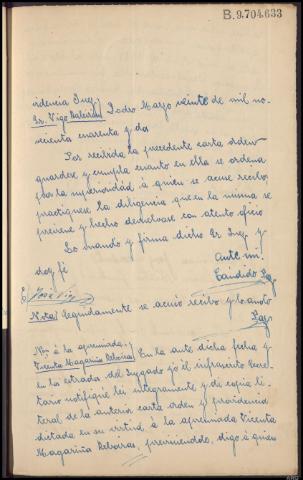 B.9.704.633
videncia Juez
Sr. Vigo Baleirón Padrón Marzo veinte de mil no-
vecientos cuarenta y dos
Por recibida la precedente carta orden
guardese y cumpla cuanto en ella se ordena
por la superioridad á quien se acuse recibo
practiquese la diligencia que en la misma se
previene y hecho devuelvase con atento oficio
Lo mando y firma dicho Sr Juez y
doy fé
Ante mi:
Candido Paz
E/ José Vigo
Nota/ Seguidamente se acusó recibo y lo anoto
Paz
Non á la apremiada
Vicenta Magariña Reboiras/ En la ante dicha fecha y
en los estrados del Juzgado yo el infrascrito Secre-
tario notifiqué leí integramente y dí copia li-
teral de la anterior carta orden y providencia
dictada en su virtud á la apremiada Vicenta
Magariña Reboiras, previniendola, digo á quien